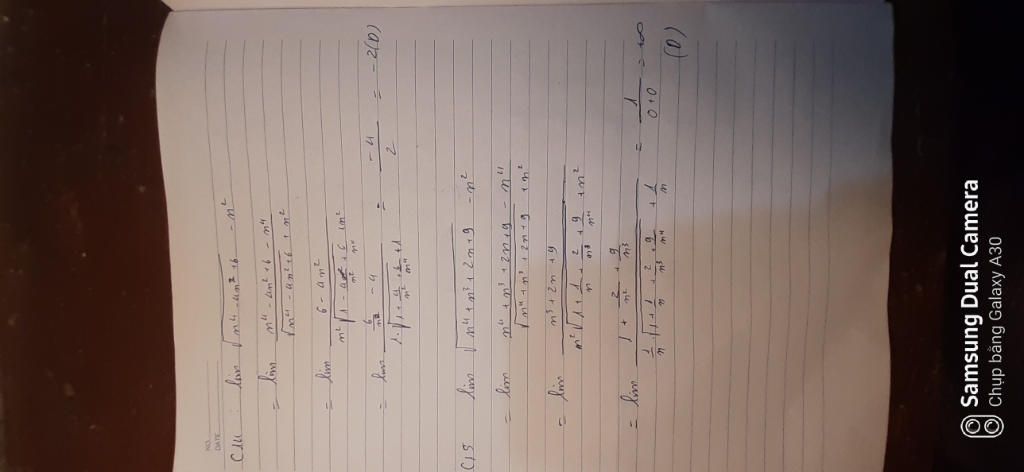 NO.
DATE
C14 : lim √(n⁴ - 4n² + 6) - n²
= lim (n⁴ - 4n² + 6 - n⁴) / (√(n⁴ - 4n² + 6) + n²)
= lim (6 - 4n²) / (n² √(1 - 4/n² + 6/n⁴) + n²)
= lim (6/n² - 4) / (1·√(1 + 4/n² + 6/n⁴) + 1) = -4/2 = -2 (D)
C15 lim √(n⁴ + n³ + 2n + 9) - n²
= lim (n⁴ + n³ + 2n + 9 - n⁴) / (√(n⁴ + n³ + 2n + 9) + n²)
= lim (n³ + 2n + 9) / (n² √(1 + 1/n + 2/n³ + 9/n⁴) + n²)
= lim (1 + 2/n² + 9/n³) / (1/n · √(1 + 1/n + 2/n³ + 9/n⁴) + 1/n) = 1/(0+0) = +∞
(D)
Samsung Dual Camera
Chụp bằng Galaxy A30